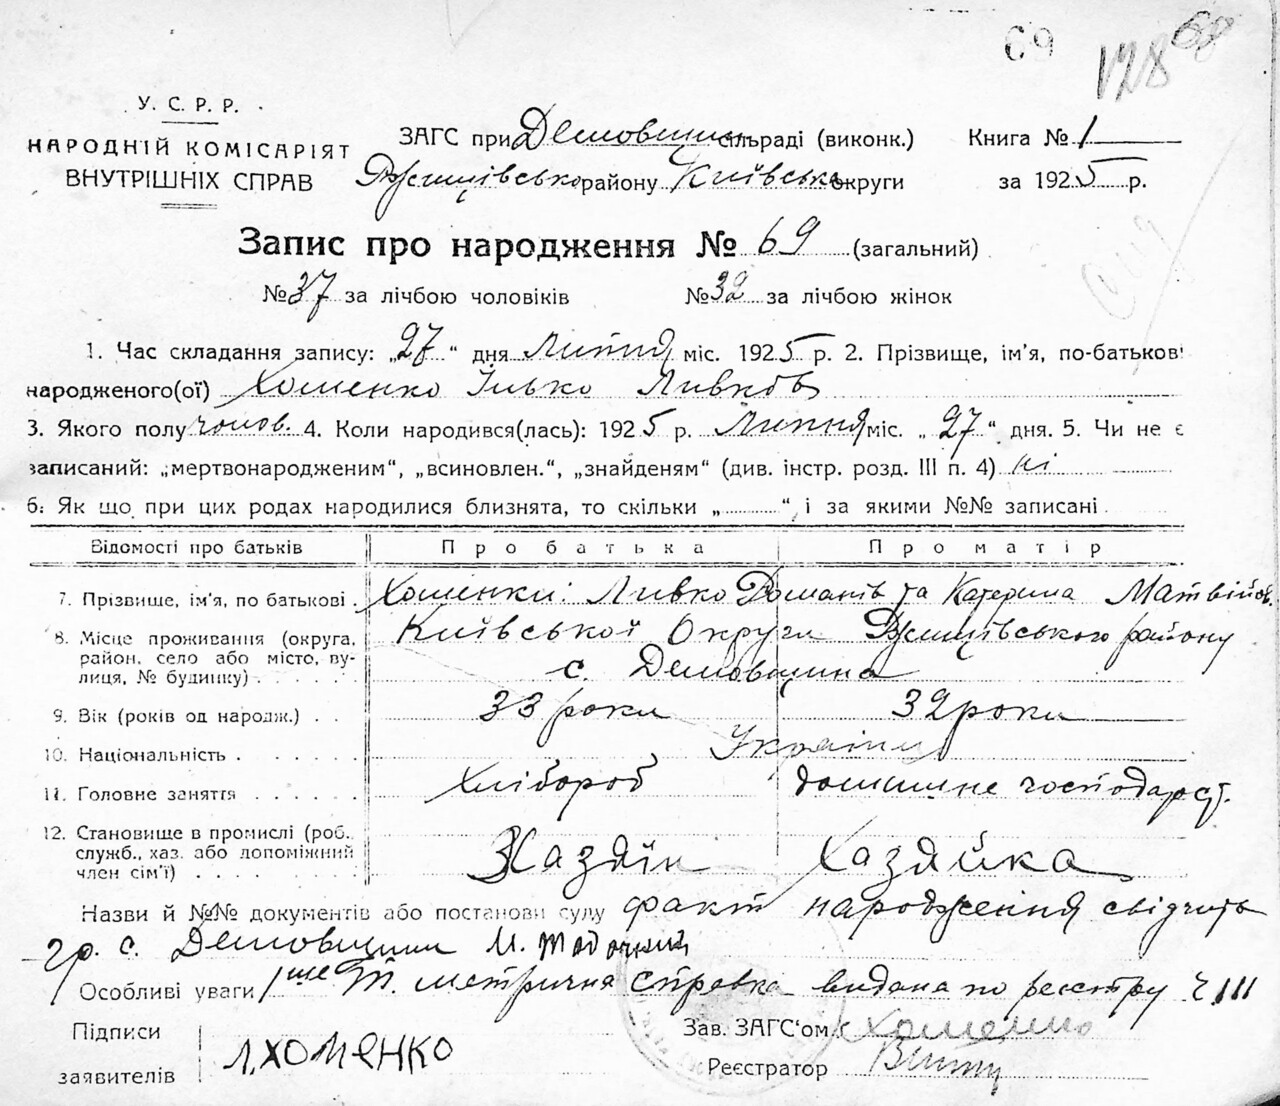 69 128 68
У. С. Р. Р.
НАРОДНІЙ КОМІСАРІЯТ
ВНУТРІШНІХ СПРАВ
ЗАГС при Демовщин. сільраді (виконк.) Книга № 1
Ржищівсько району Київсько округи за 1925 р.
Запис про народження № 69 (загальний)
№ 37 за лічбою чоловіків № 32 за лічбою жінок
1. Час складання запису: „27“ дня Липня міс. 1925 р. 2. Прізвище, ім’я, по-батькові
народженого(ої) Хоменко Ілько Ливков
3. Якого полу чолов. 4. Коли народився(лась): 1925 р. Липня міс. „27“ дня. 5. Чи не є
записаний: „мертвонародженим“, „всиновлен.“, „знайденям“ (див. інстр. розд. III п. 4) ні
6. Як що при цих родах народилися близнята, то скільки „ “ і за якими №№ записані
Відомості про батьків Про батька Про матір
7. Прізвище, ім’я, по батькові Хоменки: Ливко Романів та Катерина Матвійов.
8. Місце проживання (округа, район, село або місто, вулиця, № будинку) Київської Округи Ржищівського району
с. Демовщина
9. Вік (років од народж.) 33 роки 32 роки
10. Національність Українці
11. Головне заняття Хлібороб домашне господарст.
12. Становище в промислі (роб. служб., хаз. або допоміжний член сім’ї) Хазяїн Хазяйка
Назви й №№ документів або постанови суду факт народження свідчить
гр. с. Демовщини И.
Особливі уваги метрична справка видана по реєстру Ч III
Підписи
заявителів Л. ХОМЕНКО
Зав. ЗАГС‘ом Хоменко
Реєстратор